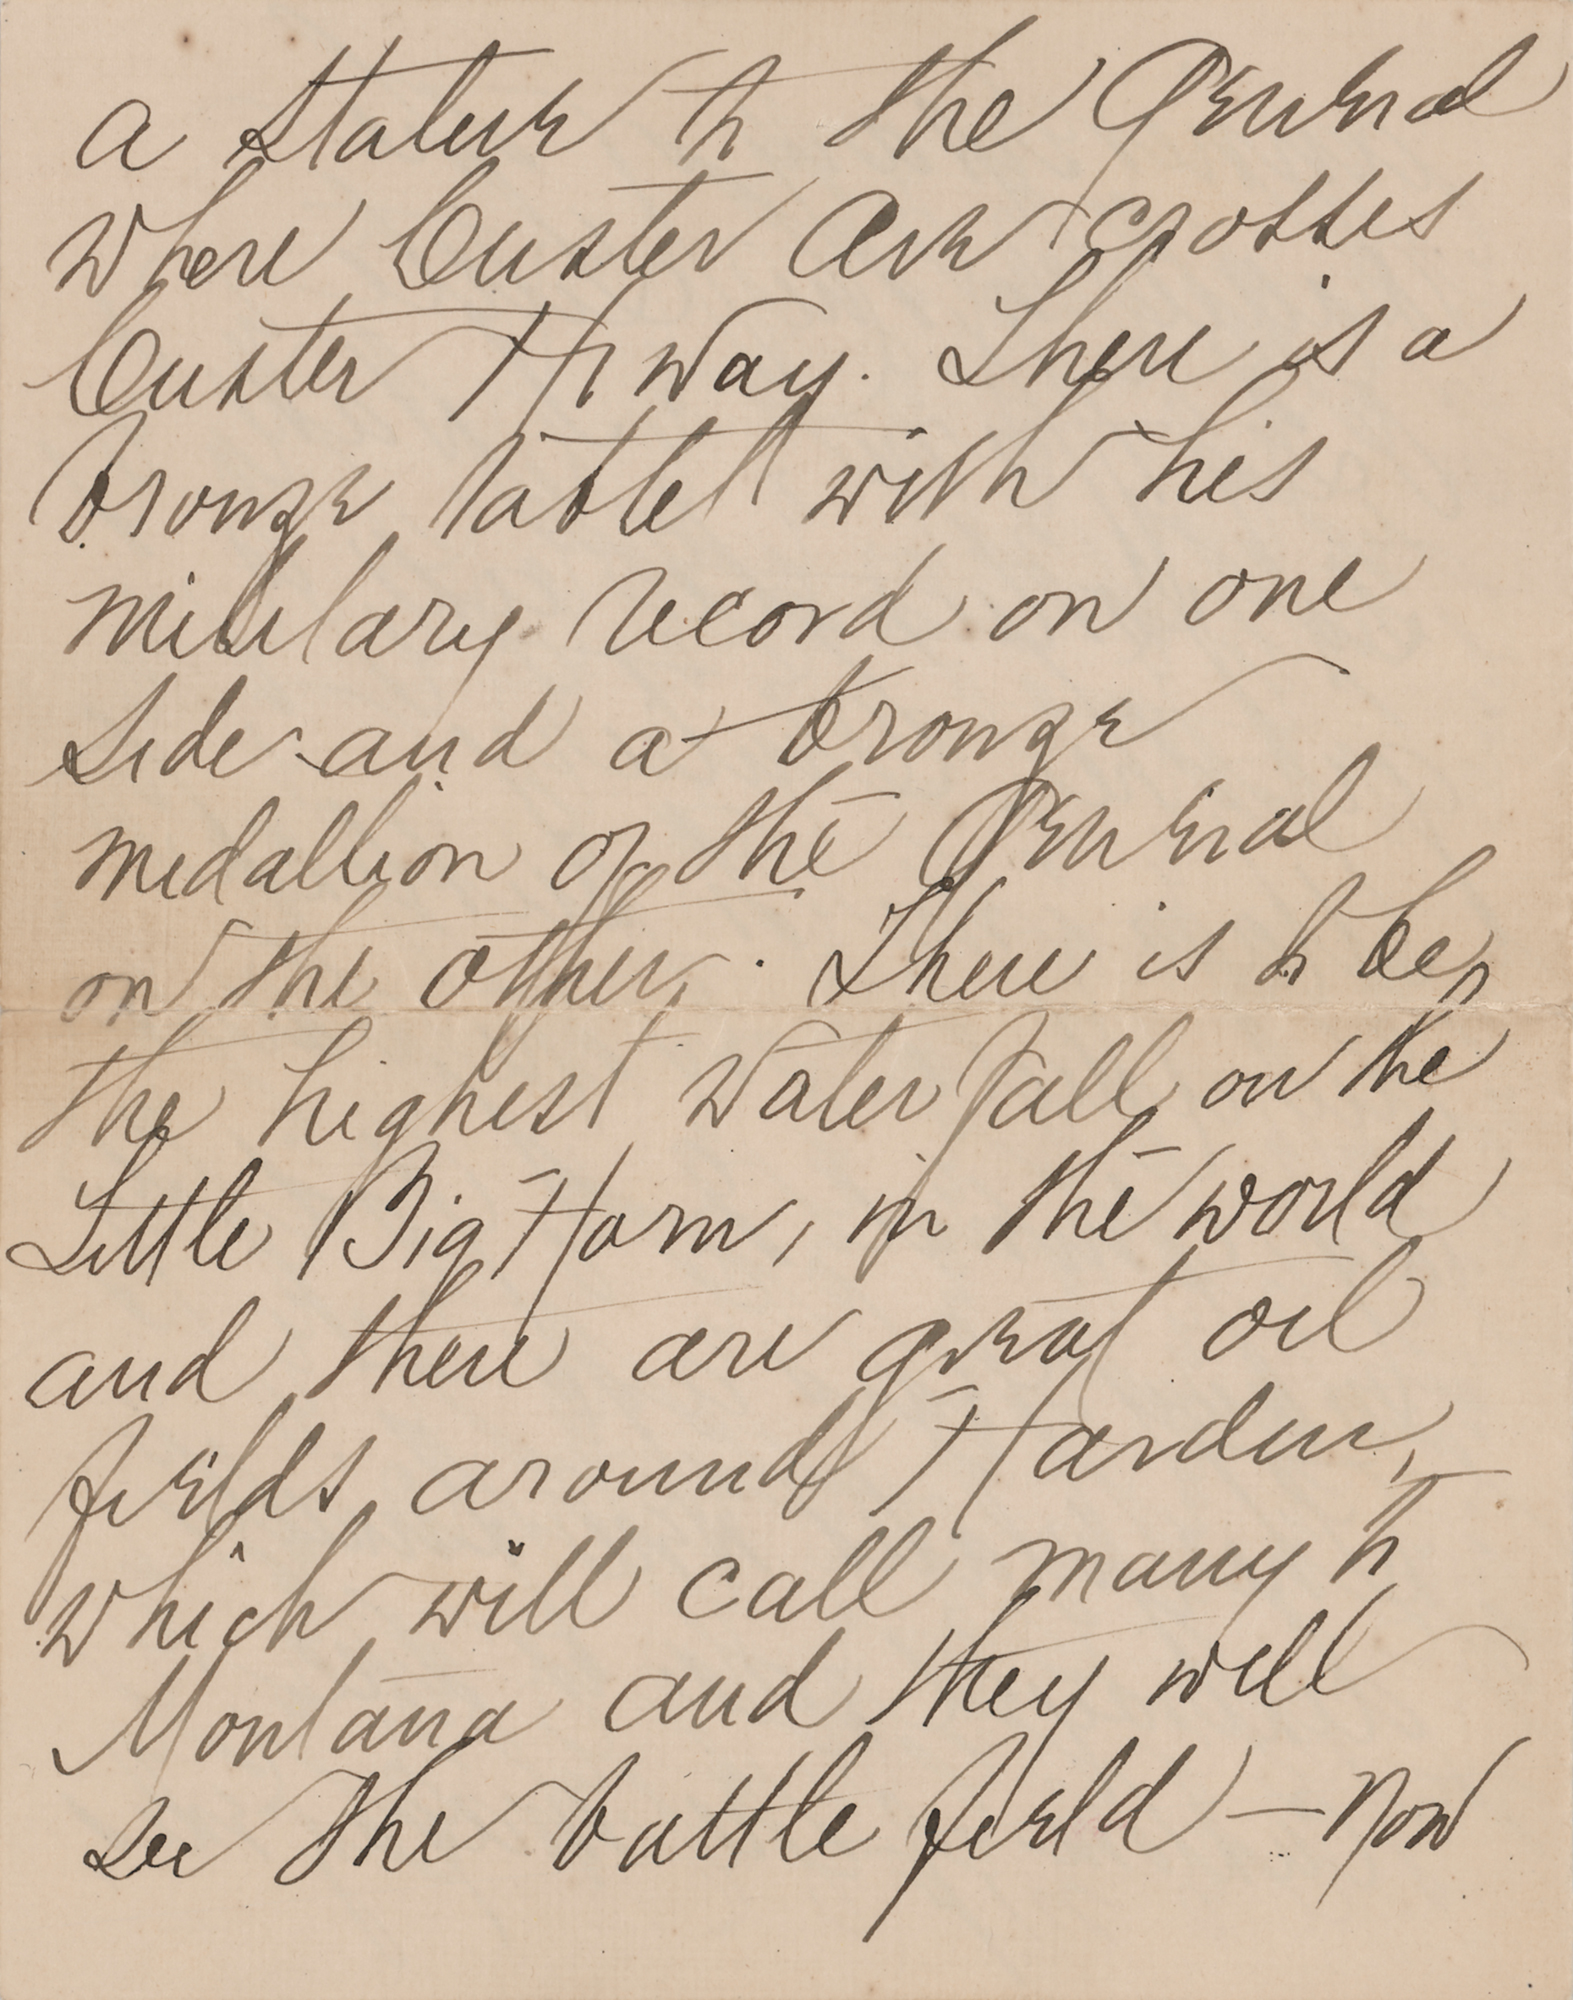 a statue to the General
where Custer Ave crosses
Custer Hiway. There is a
bronze tablet with his
military record on one
side and a bronze
medallion of the General
on the other. There is to be,
the highest water fall on the
Little Big Horn, in the world
and there are great oil
fields around Hardin,
which will call many to
Montana and they will
see the battle field — now